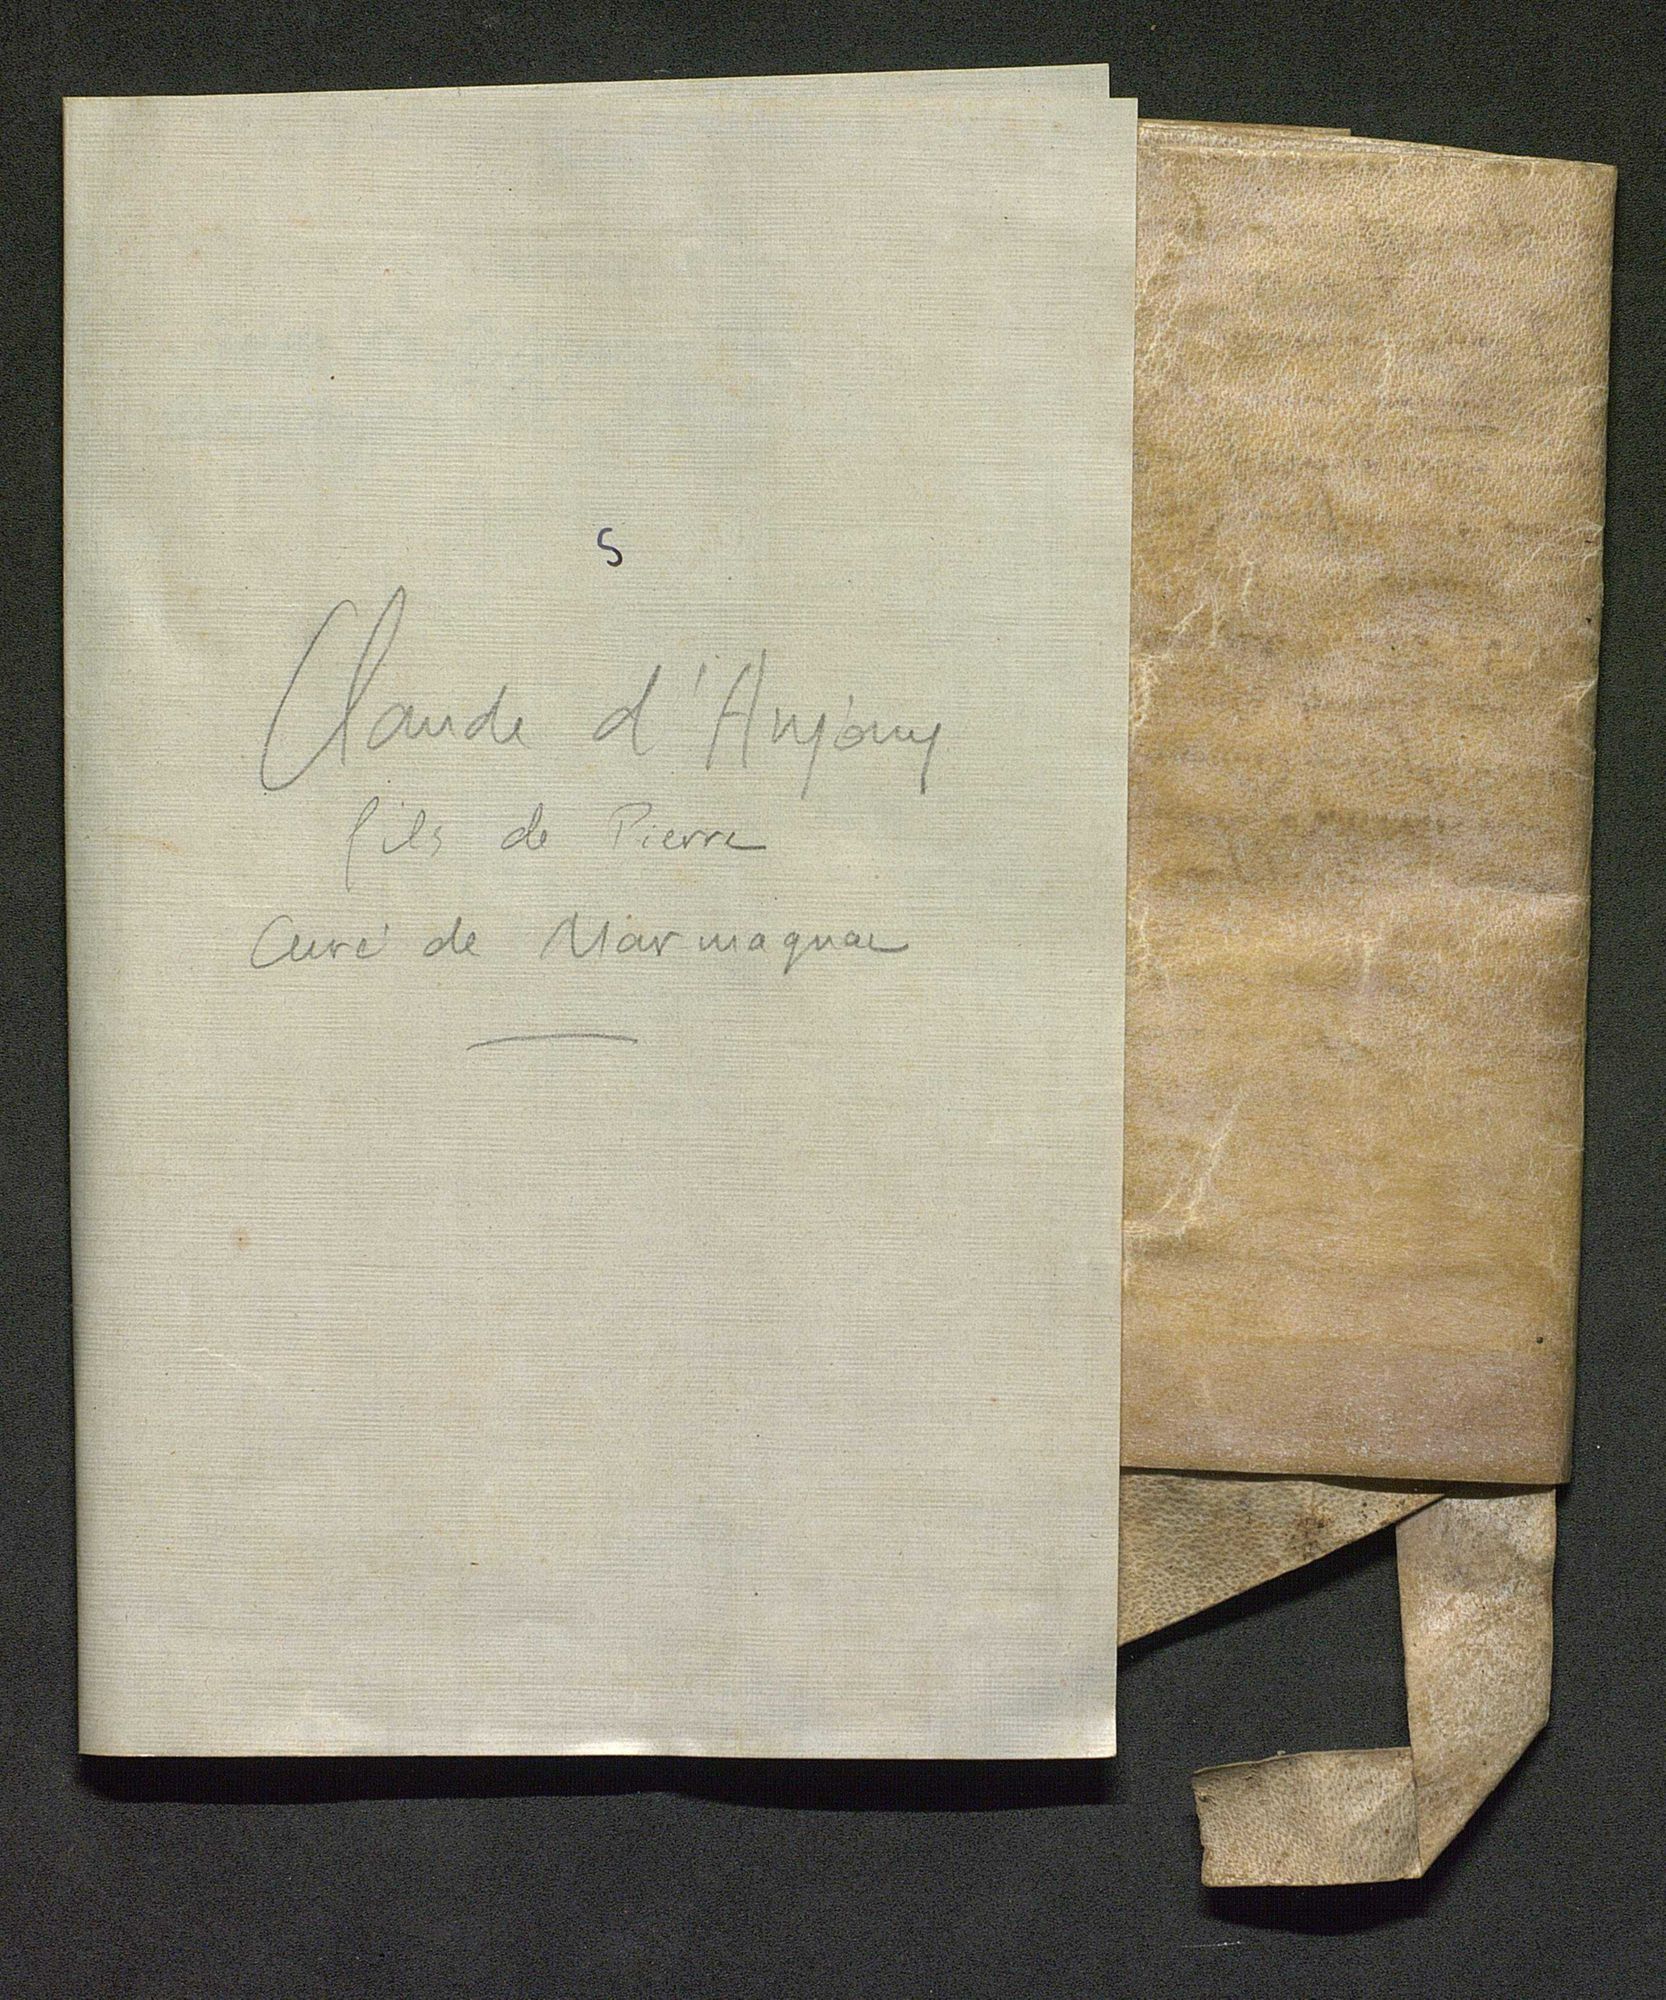 5
Claude d'Anjony
fils de Pierre
Curé de Marmagnac